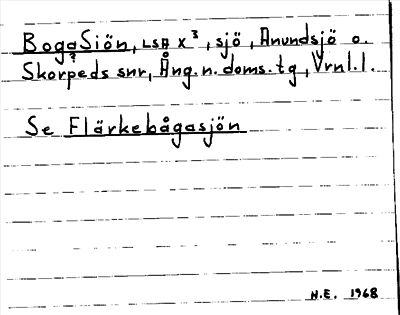 Boga Siön, LSA x³, sjö, Anundsjö o.
?
Skorpeds snr, Ång. n. doms. tg, Vrnl. l.
Se Flärkebågasjön
N.E. 1968